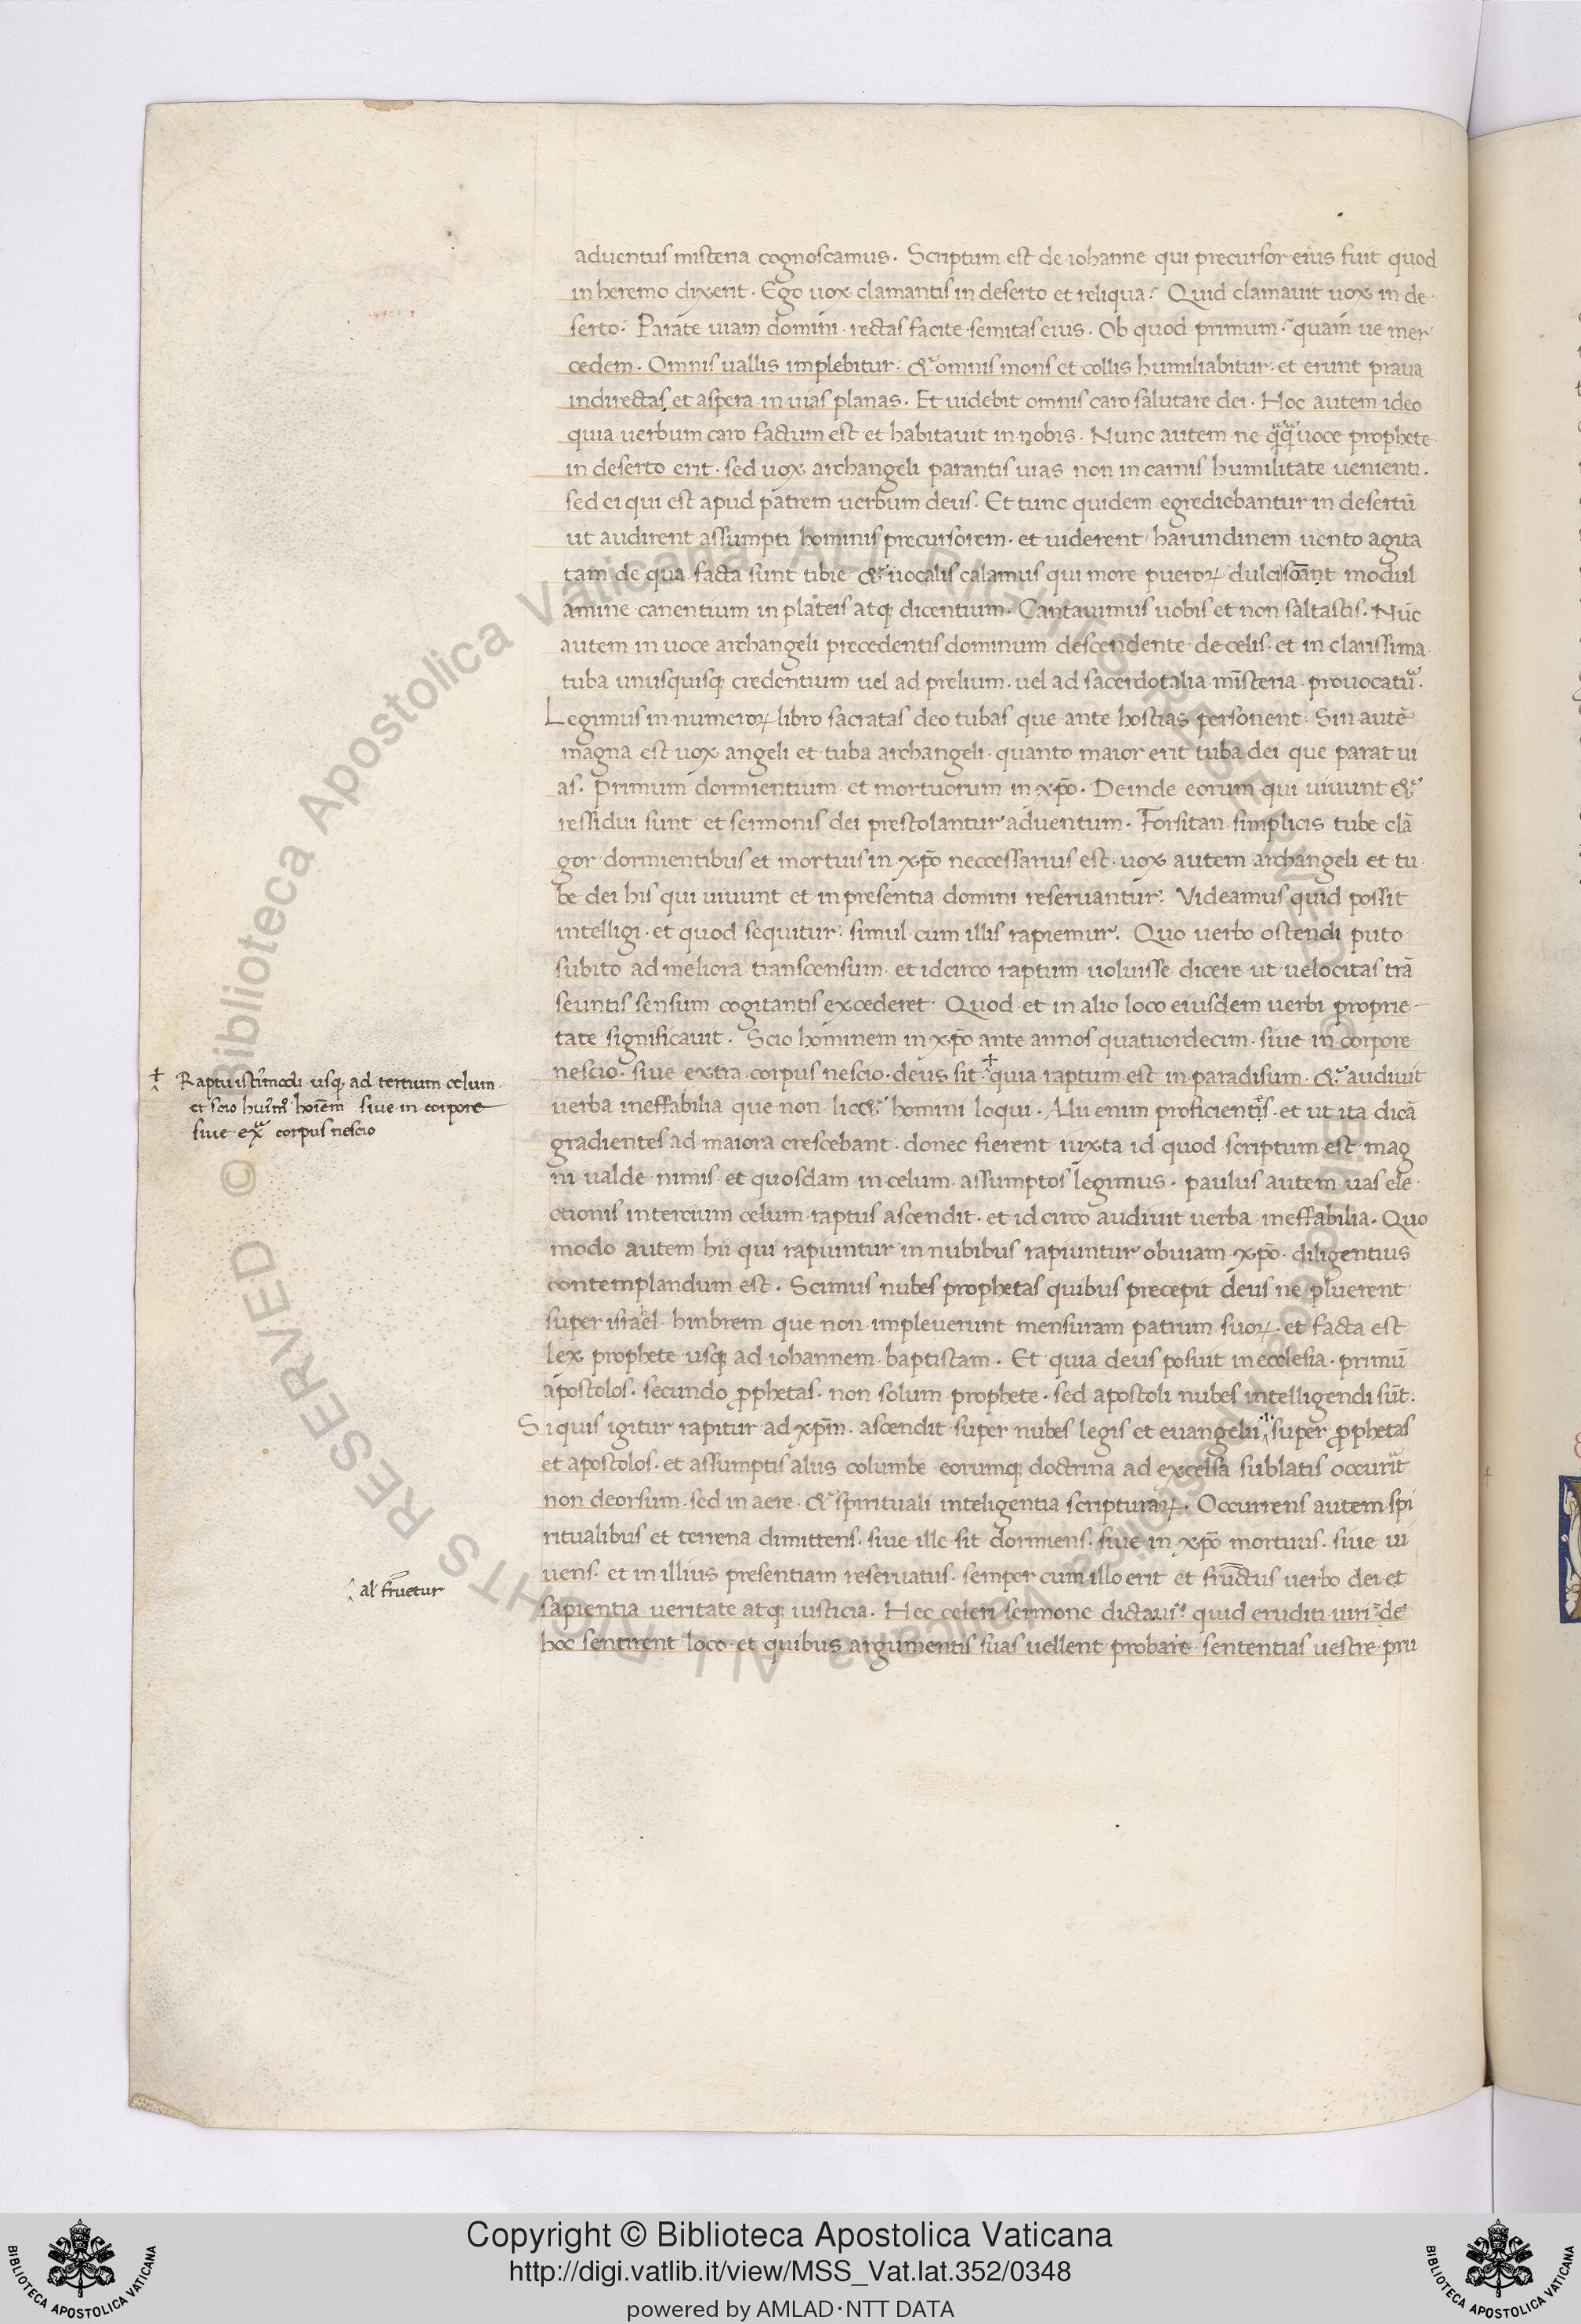 aduentus misteria cognoscamus. Scriptum est de iohanne qui precursor eius fuit quod
in heremo dixerit. Ego uox clamantis in deserto et reliqua. Quid clamauit uox in de
serto. Parate uiam domini. rectas facite semitas eius. Ob quod primum. quam ue mer
cedem. Omnis uallis implebitur. & omnis mons et collis humiliabitur. et erunt praua
in directas et aspera in uias planas. Et uidebit omnis caro salutare dei. Hoc autem ideo
quia uerbum caro factum est et habitauit in nobis. Nunc autem ne uoce prophete
in deserto erit. sed uox archangeli parantis uias non in carnis humilitate uenienti.
sed ei qui est apud patrem uerbum deus. Et tunc quidem egrediebantur in desertū
ut audirent assumpti hominis precursorem. et uiderent harundinem uento agita
tam de qua facta sunt tibie & uocalis calamus qui more pueroꝝ modul
amine canentium in plateis atq; dicentium. Cantauimus uobis et non saltastis. Nūc
autem in uoce archangeli precedentis dominum descendente de celis. et in clarissima
tuba unusquisq; credentium uel ad prelium. uel ad sacerdotalia misteria prouocatur.
Legimus in numeroꝝ libro sacratas deo tubas que ante hostias personent. Sin autē
magna est uox angeli et tuba archangeli. quanto maior erit tuba dei que parat ui
as. primum dormientium et mortuorum in xp̄o. Deinde eorum qui uiuunt &
ressidui sunt et sermonis dei prestolantur aduentum. Forsitan simplicis tube clā
gor dormientibus et mortuis in xp̄o neccessarius est. uox autem archangeli et tu
be dei his qui uiuunt et in presentia domini reseruantur. Videamus quid possit
intelligi. et quod sequitur. simul cum illis rapiemur. Quo uerbo ostendi puto
subito ad meliora transcensum. et idcirco raptum uoluisse dicere ut uelocitas trā
seuntis sensum cogitantis excederet. Quod et in alio loco eiusdem uerbi proprie-
tate significauit. Scio hominem in xp̄o ante annos quatuordecim. siue in corpore
nescio. siue extra corpus nescio. deus sit. quia raptum est in paradisum. & audiuit
uerba ineffabilia que non lic& homini loqui. Alii enim proficientes. et ut ita dicā
gradientes ad maiora crescebant. donec fierent iuxta id quod scriptum est. mag
ni ualde nimis et quosdam in celum assumptos legimus. paulus autem uas ele
ctionis in tercium celum raptus ascendit. et id circo audiuit uerba ineffabilia. Quo
modo autem hii qui rapiuntur in nubibus rapiuntur obuiam xp̄o. diligentius
contemplandum est. Scimus nubes prophetas quibus precepit deus ne pluerent
super israel hinbrem que non impleuerunt mensuram patrum suoꝝ. et facta est
lex prophete usq; ad iohannem baptistam. Et quia deus posuit in ecclesia. primū
apostolos. secundo ꝓphetas. non solum prophete. sed apostoli nubes intelligendi sūt.
Si quis igitur rapitur ad xp̄m. ascendit super nubes legis et euangelii super ꝓphetas
et apostolos. et assumptis aliis columbe eorumq; doctrina ad excelsa sublatis
non deorsum. sed in aere. & spirituali inteligentia scripturaꝝ. Occurrens autem spi
ritualibus et terrena dimittens. siue ille sit dormiens. siue in xp̄o mortuus. siue ui
uens. et in illius presentiam reseruatus. semper cum illo erit et uerbo dei et
sapientia ueritate atq; iusticia. Hec celeri sermone dictaui. quid eruditi uiri de
hoc sentirent loco et quibus argumentis suas uellent probare sententias uestre pru
Raptū usq; ad tertium celum.
et scio siue in corpore
siue corpus nescio
al fruetur
© Biblioteca Apostolica Vaticana ALL RIGHTS RESERVED
Copyright © Biblioteca Apostolica Vaticana
http://digi.vatlib.it/view/MSS_Vat.lat.352/0348
powered by AMLAD·NTT DATA
BIBLIOTECA APOSTOLICA VATICANA
BIBLIOTECA APOSTOLICA VATICANA